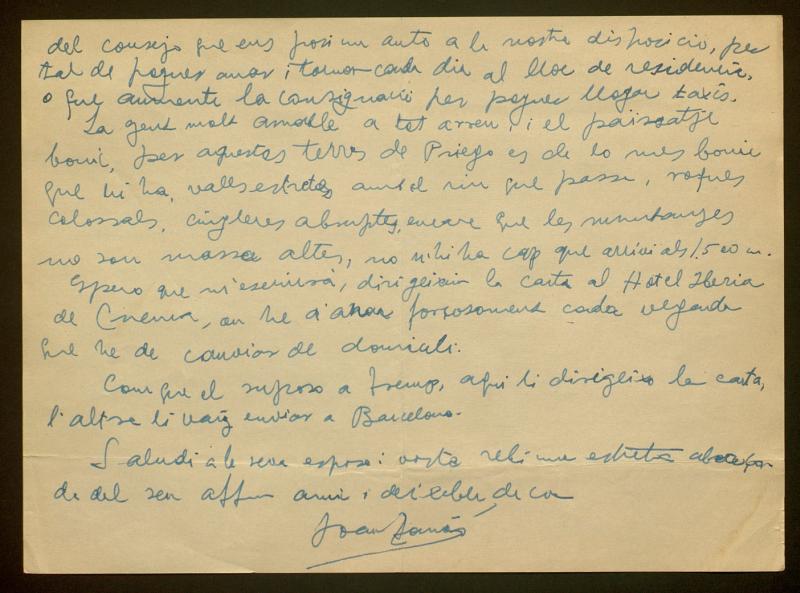 del consejo que ens posi un auto a la nostra disposicio, per
tal de poguer anar i tornar cada dia al lloc de residencia,
o que aumente la consignacio per poguer llogar taxis.
La gent molt amable a tot arreu, i el paisatje
bonic, per aquestas terras de Priego es de lo mes bonic
que hi ha, valls estretas amb el riu que passa, roques
colossals, cingleres abruptes, encare que les muntanyes
no son massa altes, no n'hi ha cap que arrivi als 1.500 m.
Espero que m'escriurá, dirigeixin la carta al Hotel Iberia
de Cuenca, on he d'anar forsosament cada vegada
que he de canviar de domicili.
Com que el suposo a Tremp, aqui li dirigeixo la carta,
l'altre li vaig enviar a Barcelona.
Saludi a la seva esposa i vosté rebi una estreta abraça-
da del seu affm amic i deixeble, de cor
Joan